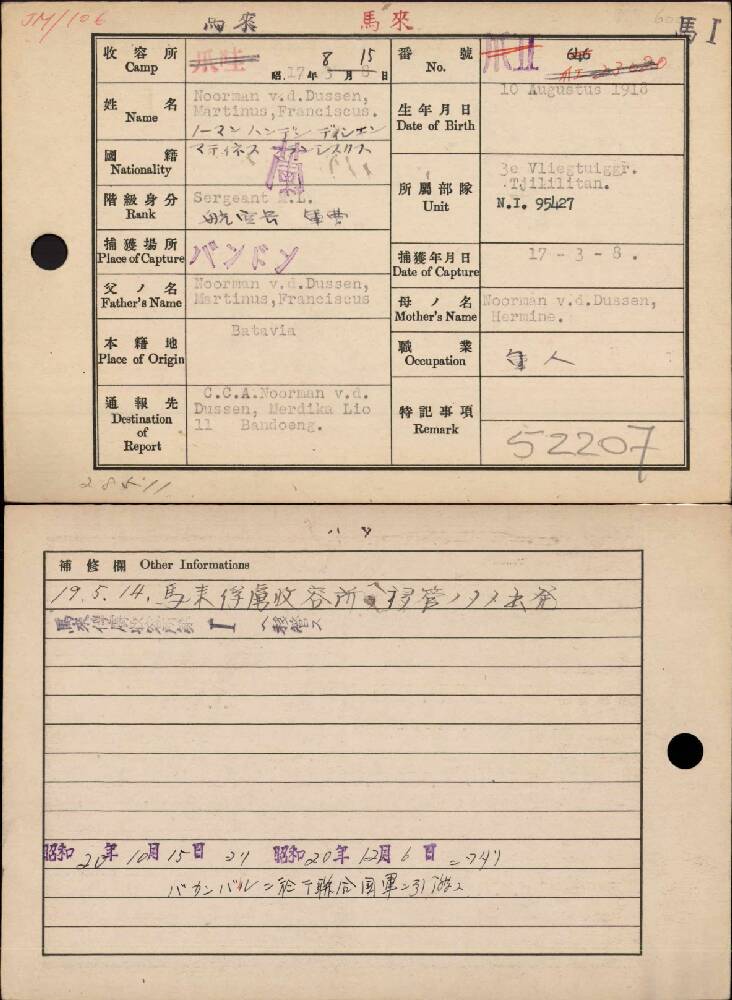 JM/106
馬來
馬來
馬 I
收容所 Camp
爪哇
昭.17年 8月 15日
番號 No.
爪 II
姓名 Name
Noorman v.d.Dussen,
Martinus,Franciscus.
生年月日 Date of Birth
10 Augustus 1918
國籍 Nationality
蘭
所屬部隊 Unit
3e Vliegtuiggr.
Tjililitan.
N.I. 95427
階級身分 Rank
Sergeant M.L.
捕獲場所 Place of Capture
バンドン
捕獲年月日 Date of Capture
17 - 3 - 8 .
父ノ名 Father's Name
Noorman v.d.Dussen,
Martinus,Franciscus
母ノ名 Mother's Name
Noorman v.d.Dussen,
Hermine.
本籍地 Place of Origin
Batavia
職業 Occupation
軍人
通報先 Destination of Report
C.C.A.Noorman v.d.
Dussen, Merdika Lio
11 Bandoeng.
特記事項 Remark
52207
補修欄 Other Informations
19.5.14. 馬來俘虜收容所へ移管ノタメ出発
馬來俘虜收容所第 I へ移管ス
昭和20年10月15日 昭和20年12月6日
バカンバルニ於テ聯合国軍ニ引渡ス